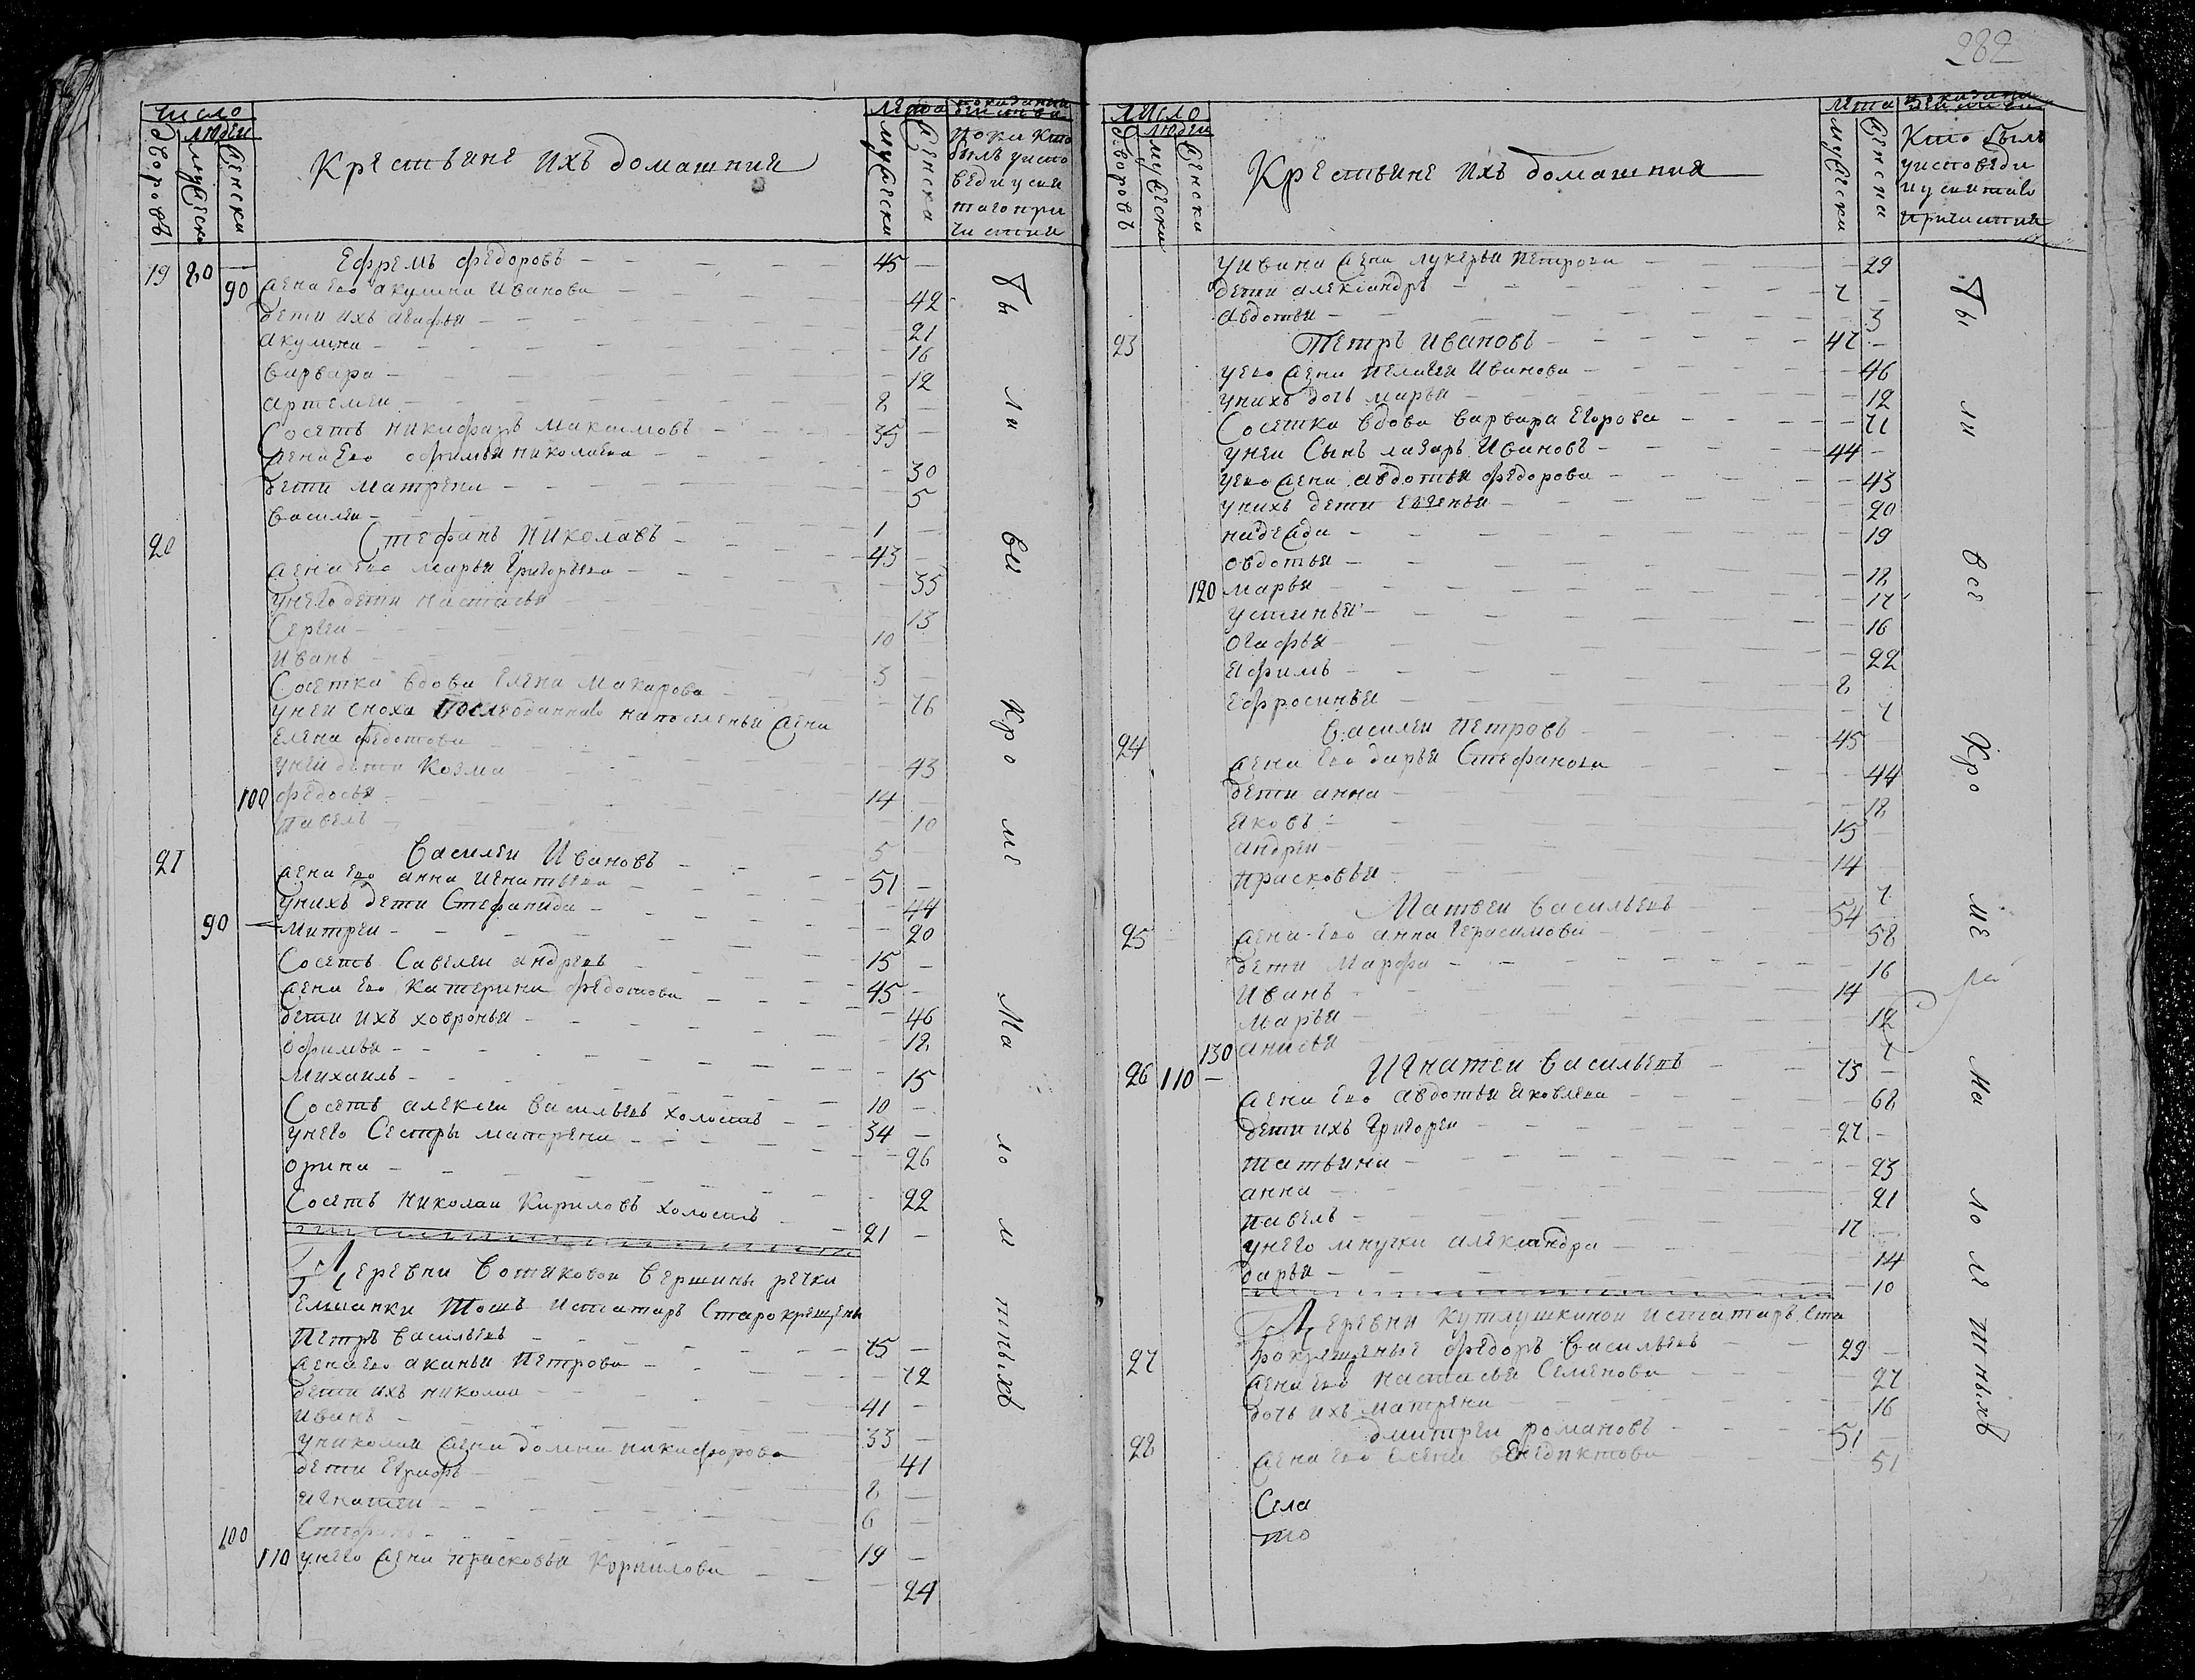 282
число
людеи
дворовъ
мужеска
женска
Крестьяне ихъ домашнии
лета
мужески
женски
показании
Кто
былъ уиспо
веди усвя
таго при
чистия
19 80 — Ефремъ федоровъ — 45 —
90 жена ево акулина Иванова — 42
дети ихъ агафья — 21
акулина — 16
варвара — 12
артемеи — 8 —
Соседъ никифаръ максимовъ — 35 —
жена ево офимья николаева — 30
дети матрена — 5
василеи — 1 —
20 Стефанъ Николаевъ — 43 —
жена ево марья григорьева — 35
унего дети настасья — 13
Сергеи — 10
иванъ — 3
Соседка вдова елена макарова — 76
унеи сноха посл на поселенье жена
елена федотова — 43
унеи дети козма — 14
100 федосья — 10
павелъ — 5
21 Василеи Ивановъ — 51 —
жена ево анна игнатьева — 44
унихъ дети Стефанида — 20
90 — митреи — 15 —
Соседъ Савелеи андреевъ — 45 —
жена ево катерина федотова — 46
дети ихъ ховронья — 18
офимья — 15
михаилъ — 10 —
Соседъ алексеи васильевъ холостъ — 34 —
унего Сестры матрена — 26
орина — 22
Соседъ николаи Кириловъ холостъ — 21 —
Деревни вотяковои вершины речки
Ельшанки тожъ истатаръ старокрещены
Петръ васильевъ — 75 —
жена ево аксинья Петрова — 72
дети ихъ николаи — 41 —
иванъ — 33 —
униколая жена домна никифорова — 41
дети Еграфъ — 8 —
игнатеи — 6 —
100 Стефанъ — 19 —
110 унего жена прасковья Корнилова — 24
бы ли вси кроме малолетныхъ
число
людеи
дворовъ
мужески
женски
Крестьяне ихъ домашния
лета
мужески
женска
Кто былъ
уисповеди
и усвятаво
причастия
уивана жена лукерья петрова — 29
дети александръ — 7 —
авдотья — 3
23 Петръ ивановъ — 47 —
уево жена пелагея Иванова — 46
унихъ дочь марья — 12
Соседка вдова варвара Егорова — 71
унеи Сынъ лазарь Ивановъ — 44 —
уево жена авдотья федорова — 43
унихъ дети евгенья — 20
надежда — 19
овдотья — 18
120 марья — 17
устинья — 16
огафья — 22
ефимъ — 8
ефросинья — 7
24 Василеи Петровъ — 45
жена ево дарья Стефанова — 44
дети анна — 18
яковъ — 15 —
андреи — 14
прасковья — 7
25 Матвеи васильевъ — 54 —
жена ево анна герасимова — 58
дети Марфа — 16
иванъ — 14 —
марья — 12
130 анисья — 7
26 110 — Игнатеи васильевъ — 73 —
жена ево авдотья яковлева — 68
дети ихъ григореи — 27 —
татьяна — 23
анна — 21
павелъ — 17 —
унего внучки александра — 14
дарья — 10
Деревни кутлушкинои истатаръ ста
27 рокрещеные федоръ васильевъ — 29 —
жена ево настасья Семенова — 27
дочь ихъ матрена — 16
28 дмитреи романовъ — 51 —
жена ево елена венедиктова — 51
бы ли все кроме малолетныхъ
Села
то